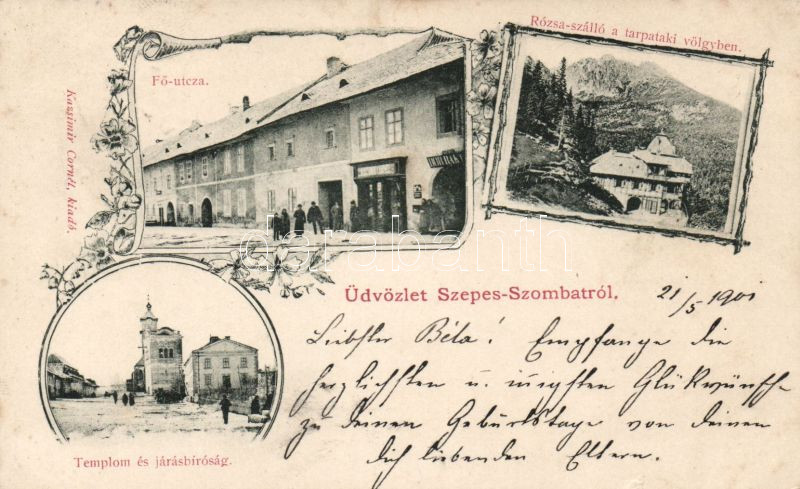 Rózsa-szálló a tarpataki völgyben.
Fő-utcza.
Kazsimir Cornél, kiadó.
darabanth
Üdvözlet Szepes-Szombatról.
21/5 1901
Liebster Béla! Empfange die
herzlichsten u. innigsten Glückwünsche
zu deinen Geburtstage von deinen
dich liebenden Eltern.
Templom és járásbiróság.